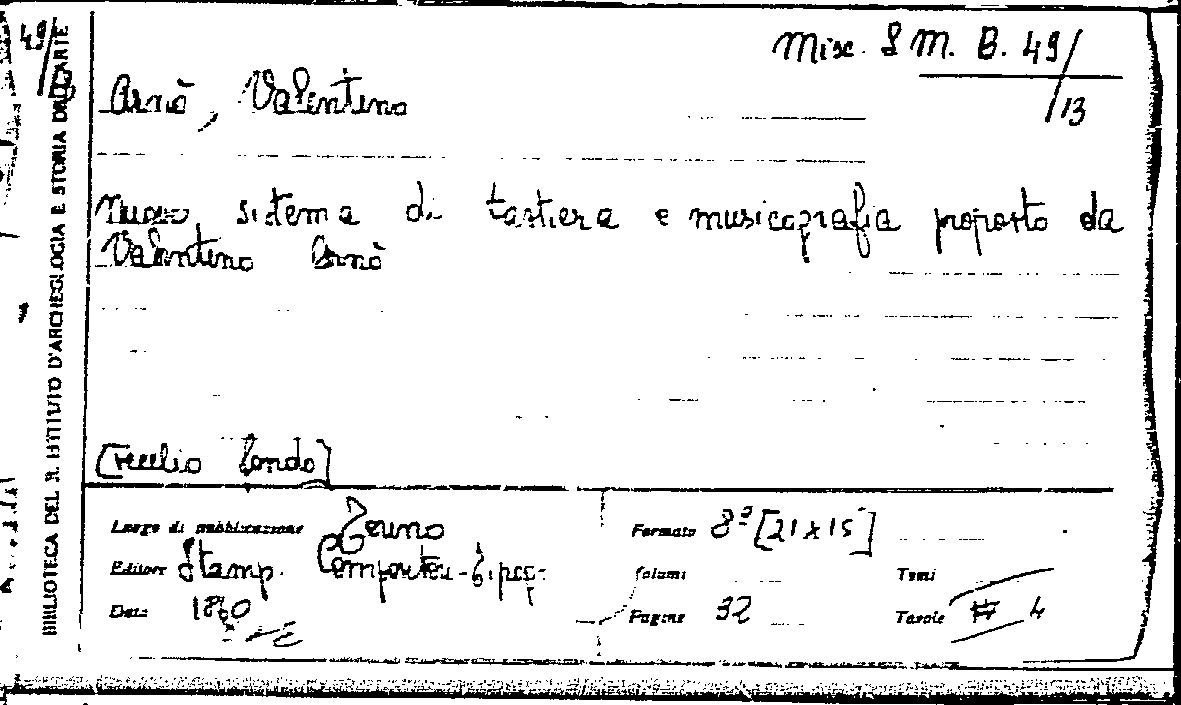 49/13
BIBLIOTECA DEL R. ISTITUTO D'ARCHEOLOGIA E STORIA DELL'ARTE
Misc. S M. B. 49/13
Arnò, Valentino
Nuovo sistema di tastiera e musicografia proposto da
Valentino Arnò
[Vecchio fondo]
Luogo di pubblicazione Torino
Formato 8º [21x15]
Editore Stamp. Compositori-Tipog.
Volumi
Tomi
Data 1860
Pagine 32
Tavole 4